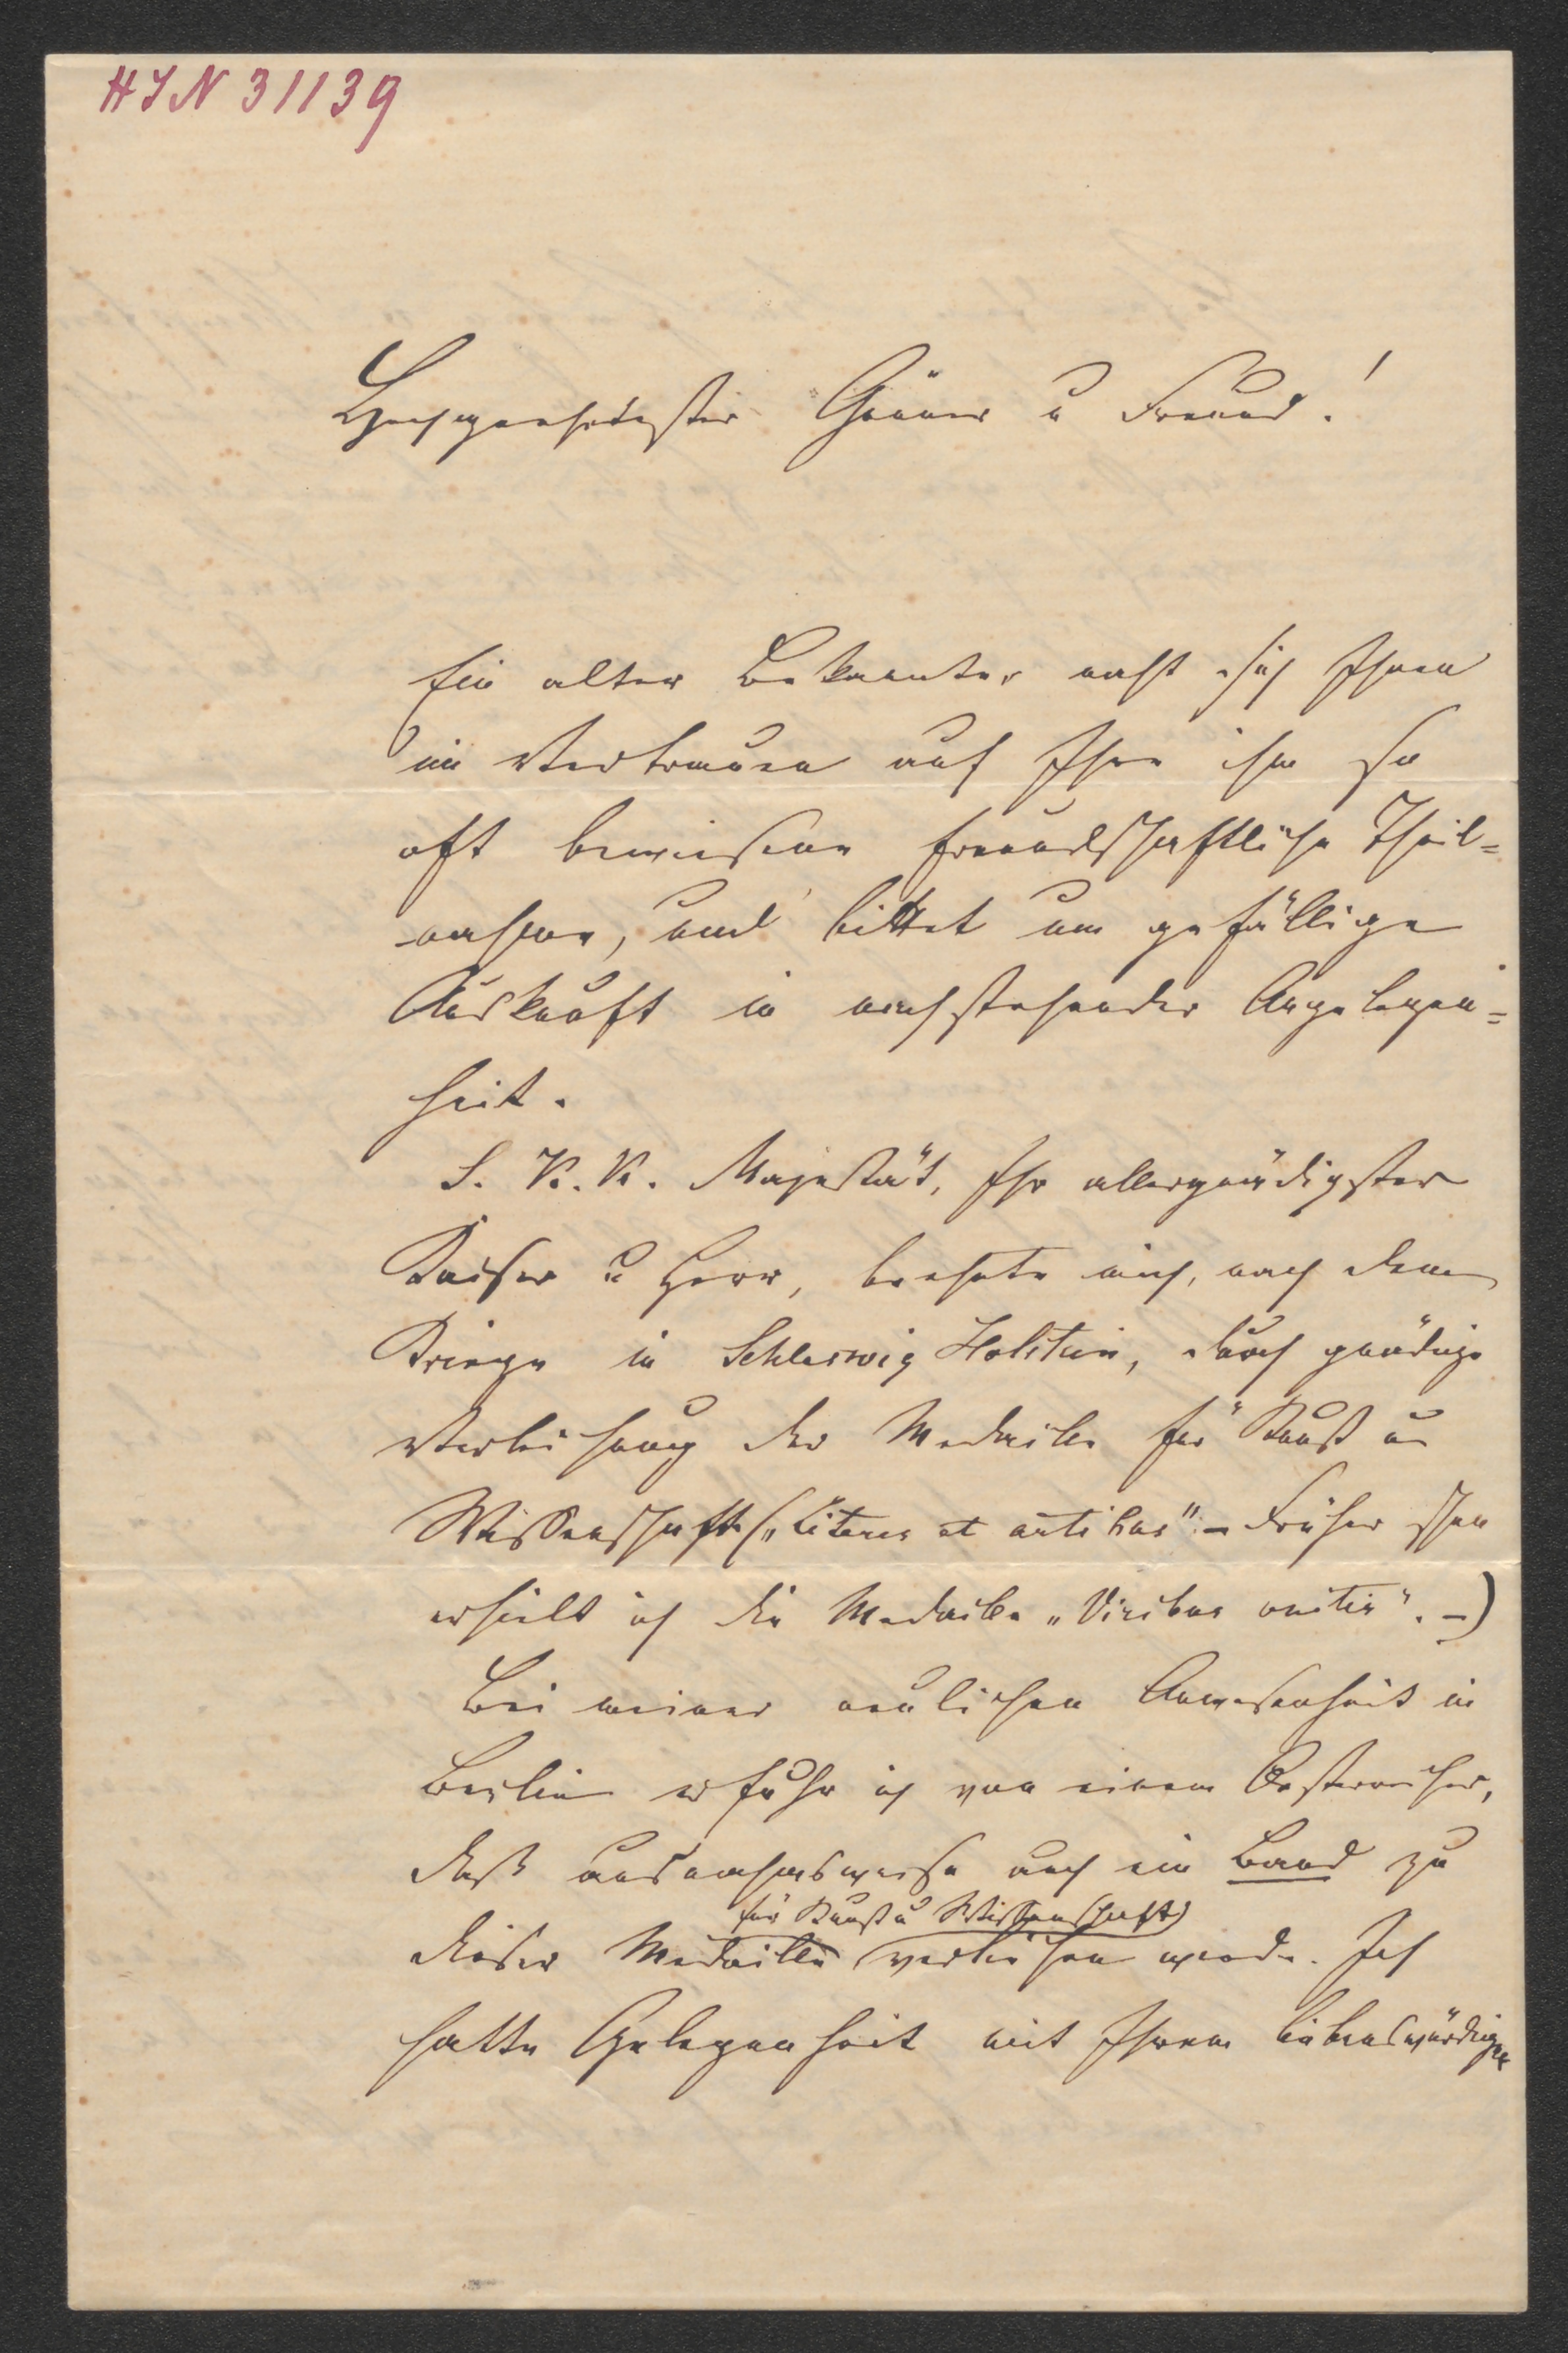 HIN 31139
Hochgeehrtester Gönner u Freund!
Ein alter Bekannter naht sich Ihnen
im Vertrauen auf Ihre ihm so
oft bewiesene freundschaftliche Theil=
nahme, und bittet um gefällige
Auskunft in nachstehender Angelegen=
heit.
S. K. K. Majestät, Ihr allergnädigster
Kaiser u Herr, beehrte mich, nach dem
Kriege in Schleswig Holstein, durch gnädige
Verleihung der Medaille für Kunst u
Wissenschaft („Literis et artibus" – früher schon
erhielt ich die Medaille „Viribus unitis". –)
Bei meiner neulichen Anwesenheit in
Berlin erfuhr ich von einem Oesterreicher,
daß ausnahmsweise auch ein Band zu
für Kunst u Wissenschaft
dieser Medaille verliehen werde. Ich
hatte Gelegenheit mit Ihrem liebenswürdigen